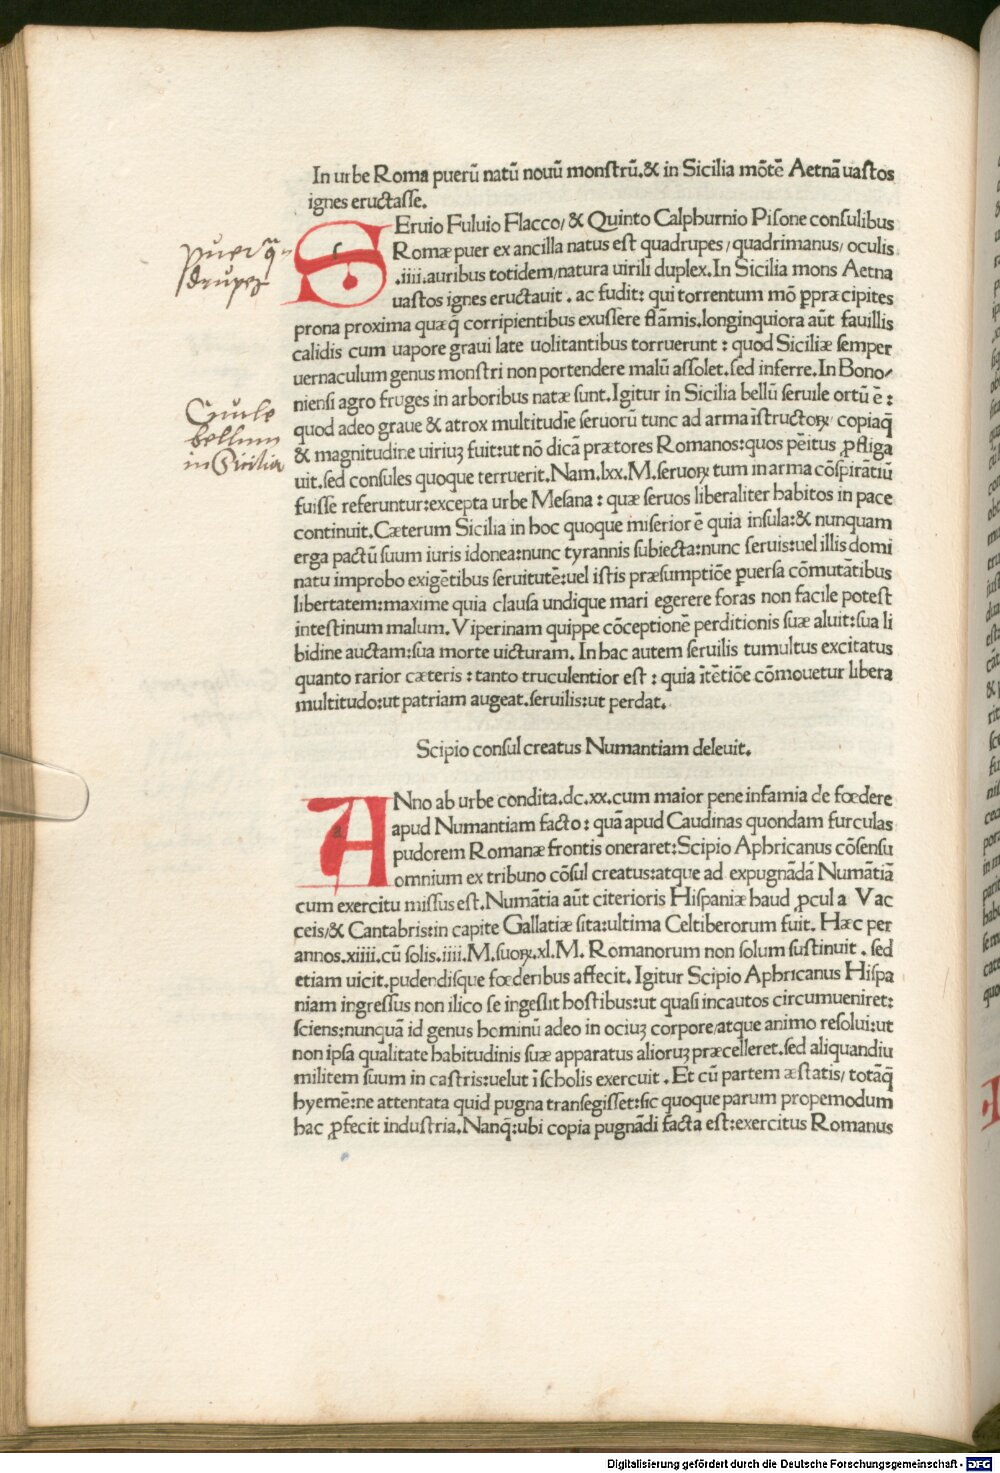 In urbe Roma puerū natū nouū monstrū.& in Sicilia mōtē Aetnā uastos
ignes eructasse.
SEruio Fuluio Flacco/ & Quinto Calphurnio Pisone consulibus
Romæ puer ex ancilla natus est quadrupes/ quadrimanus/ oculis
.iiii.auribus totidem/natura uirili duplex.In Sicilia mons Aetna
uastos ignes eructauit . ac fudit: qui torrentum mō ꝑpræcipites
prona proxima quæq̄ corripientibus exussere flāmis.longinquiora aūt fauillis
calidis cum uapore graui late uolitantibus torruerunt : quod Siciliæ semper
uernaculum genus monstri non portendere malū assolet.sed inferre.In Bono/
niensi agro fruges in arboribus natæ sunt.Igitur in Sicilia bellū seruile ortū ē :
quod adeo graue & atrox multitudīe seruorū tunc ad arma īstructoꝝ/ copiaq̄
& magnitudine uiriuꝫ fuit:ut nō dicā prætores Romanos:quos pēitus ꝓfliga
uit.sed consules quoque terruerit.Nam.lxx.M.seruoꝝ tum in arma cōspirātiū
fuisse referuntur:excepta urbe Mesana : quæ seruos liberaliter habitos in pace
continuit.Cæterum Sicilia in hoc quoque miserior ē quia insula:& nunquam
erga pactū suum iuris idonea:nunc tyrannis subiecta:nunc seruis:uel illis domi
natu improbo exigētibus seruitutē:uel istis præsumptiōe ꝑuersa cōmutātibus
libertatem:maxime quia clausa undique mari egerere foras non facile potest
intestinum malum.Viperinam quippe cōceptionē perditionis suæ aluit:sua li
bidine auctam:sua morte uicturam.In hac autem seruilis tumultus excitatus
quanto rarior cæteris : tanto truculentior est : quia ītētiōe cōmouetur libera
multitudo:ut patriam augeat.seruilis:ut perdat.
puer qͣ-
drupez
Ciuile
bellum
in Sicilia
Scipio consul creatus Numantiam deleuit.
ANno ab urbe condita.dc.xx.cum maior pene infamia de fœdere
apud Numantiam facto : quā apud Caudinas quondam furculas
pudorem Romanæ frontis oneraret:Scipio Aphricanus cōsensu
omnium ex tribuno cōsul creatus:atque ad expugnādā Numātiā
cum exercitu missus est.Numātia aūt citerioris Hispaniæ haud ꝓcul a Vac
ceis/& Cantabris:in capite Gallatiæ sita:ultima Celtiberorum fuit. Hæc per
annos.xiiii.cū solis.iiii.M.suoꝝ.xl.M. Romanorum non solum sustinuit . sed
etiam uicit.pudendisque fœderibus affecit.Igitur Scipio Aphricanus Hispa
niam ingressus non ilico se ingessit hostibus:ut quasi incautos circumueniret:
sciens:nunquā id genus hominū adeo in ociuꝫ corpore/atque animo resolui:ut
non ipsa qualitate habitudinis suæ apparatus alioruꝫ præcelleret.sed aliquandiu
militem suum in castris:uelut ī scholis exercuit . Et cū partem æstatis/ totāq̄
hyemē:ne attentata quid pugna transegisset:sic quoque parum propemodum
hac ꝓfecit industria.Nanq̄:ubi copia pugnādi facta est:exercitus Romanus
Digitalisierung gefördert durch die Deutsche Forschungsgemeinschaft - DFG